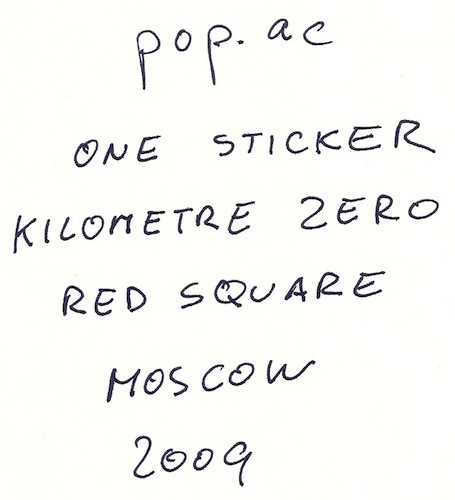 pop.ac
ONE STICKER
KILOMETRE ZERO
RED SQUARE
MOSCOW
2009